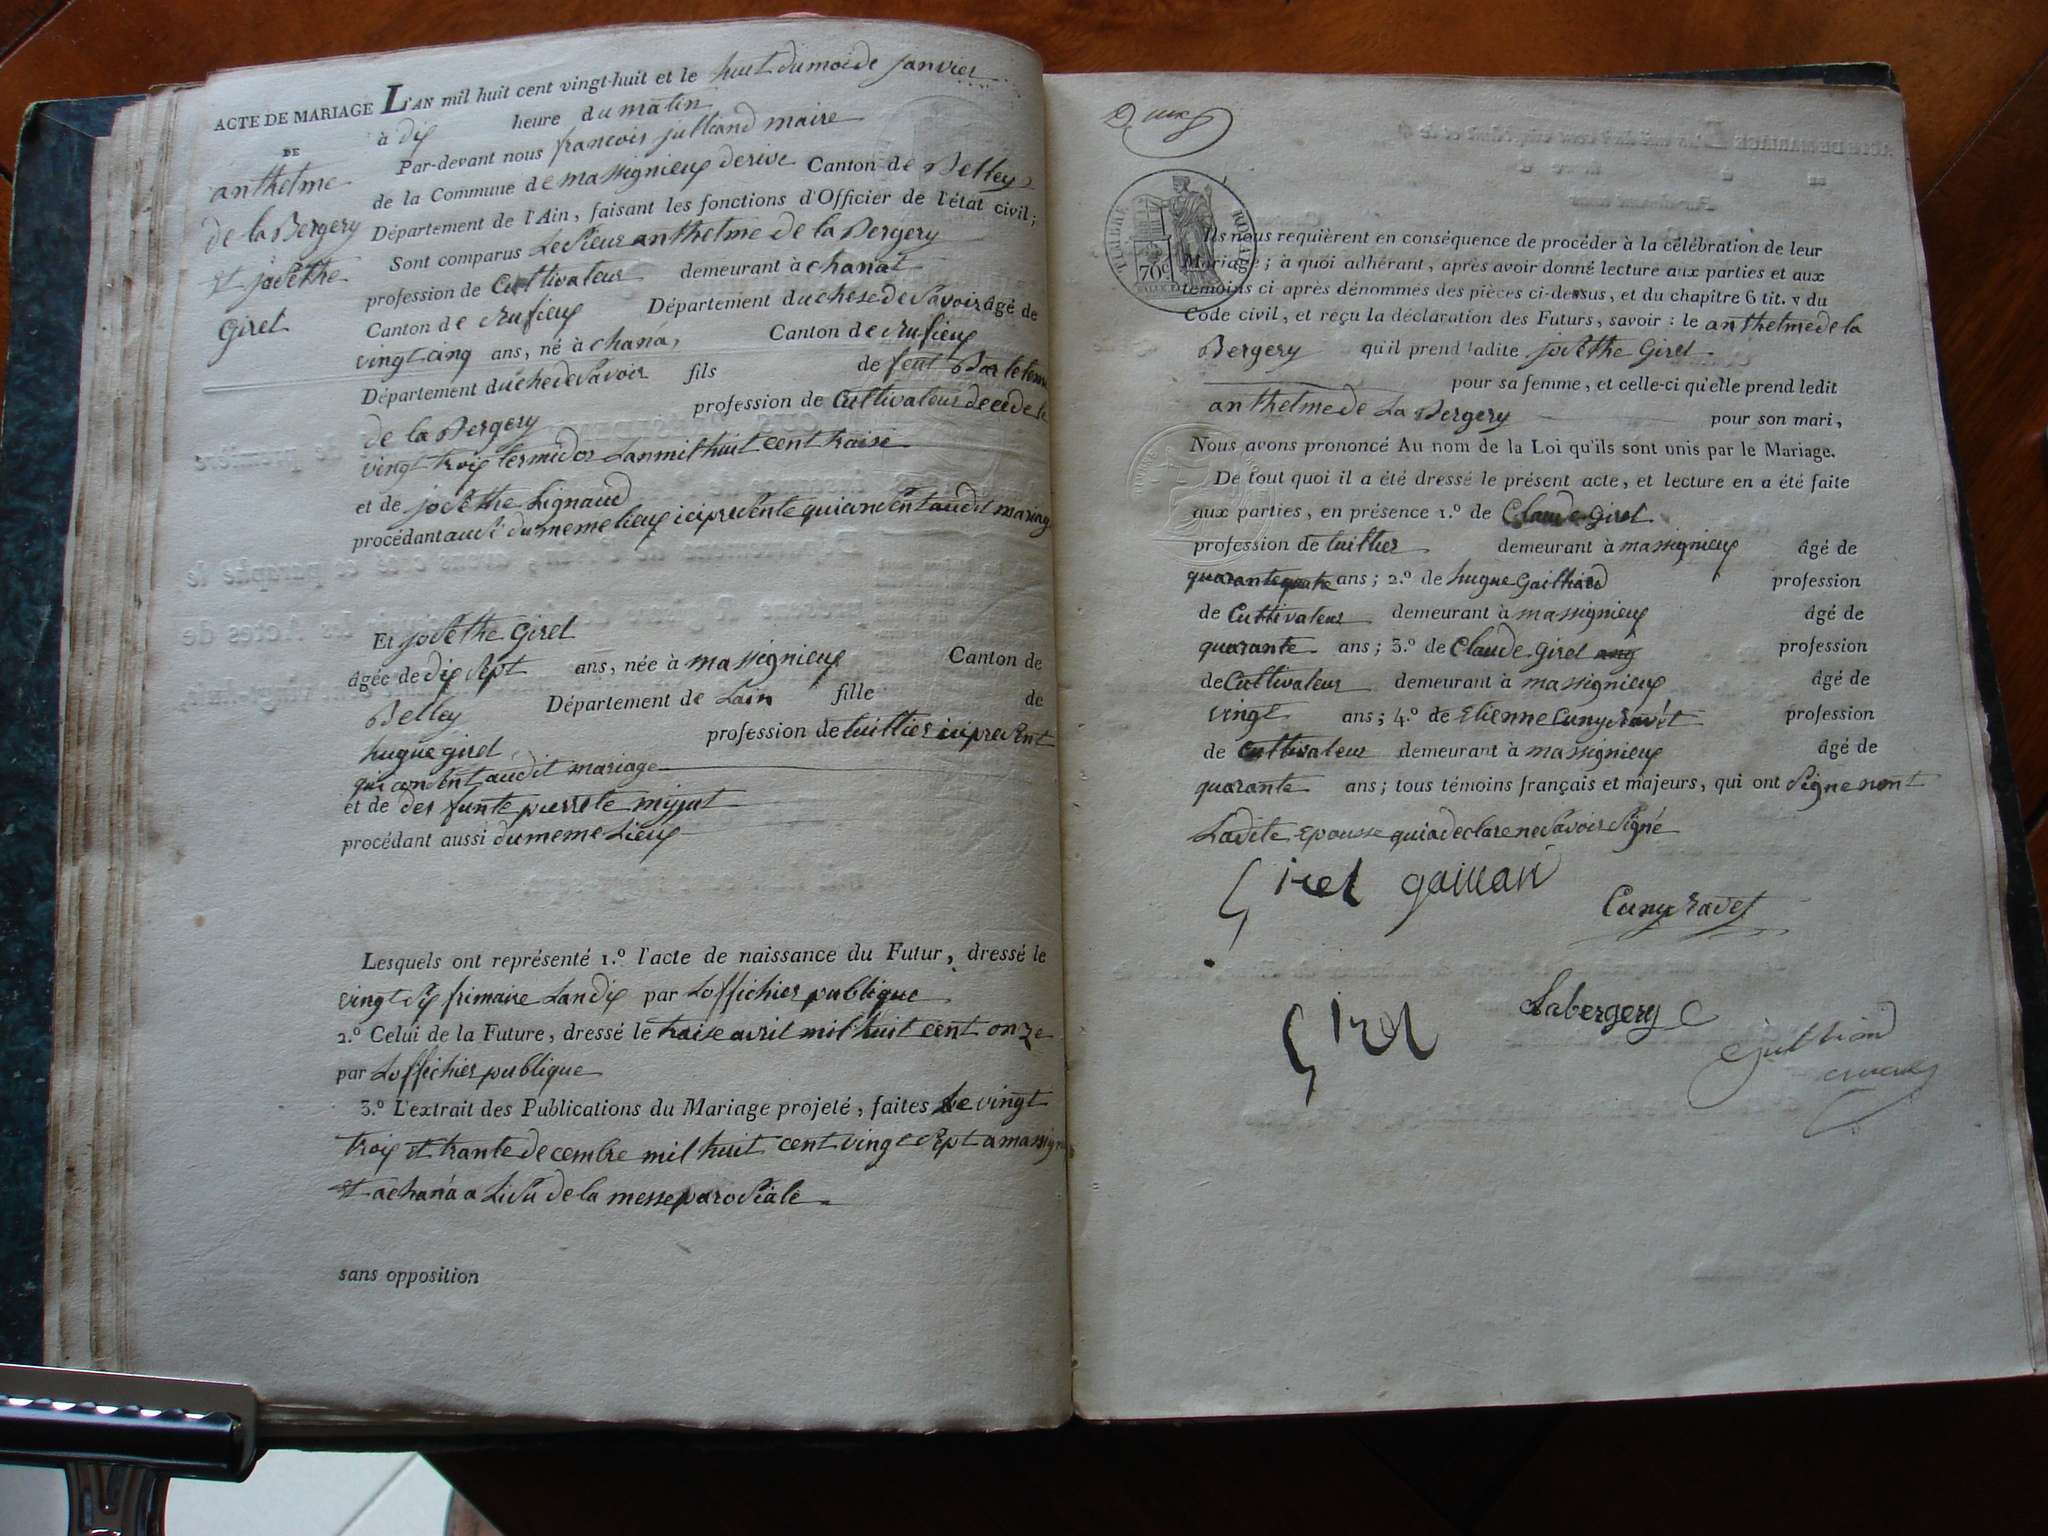 ACTE DE MARIAGE L'AN mil huit cent vingt-huit et le huit du moi de janvier
à dix heure du matin
DE
anthelme
de la Bergery
et josethe
Girel
Par-devant nous francois julliand maire
de la Commune de massignieux de rive Canton de Belley
Département de l'Ain, faisant les fonctions d'Officier de l'état civil;
Sont comparus Le sieur anthelme de la Bergery
profession de Cultivateur demeurant à chanat
Canton de Rufieux Département duchese de Savoir âgé de
vingt cinq ans, né à chana, Canton de Rufieux
Département duchede Savoir fils de feut Bartelemi
de la Bergery profession de Cultivateur decede le
vingt trois termidor Lan mil huit cent traise
et de josethe Lignaud
procédant audi du meme lieux ici presente qui consent audit mariag
Et josethe Girel
âgée de dix sept ans, née à massignieux Canton de
Belley Département de Lain fille de
hugue girel profession de tuillier ici present
qui consent audit mariage
et de defunte pierrete mijjat
procédant aussi du meme Lieux
Lesquels ont représenté 1.º l'acte de naissance du Futur, dressé le
vingt six frimaire Lan dix par Loffichier publique
2.º Celui de la Future, dressé le traise avril mil huit cent onze
par Loffichier publique
3.º L'extrait des Publications du Mariage projeté, faites le vingt
trois et trante decembre mil huit cent vingt sept a massign
et a chana a Lisu de la messe parosiale
sans opposition
TIMBRE ROYAL
70c
Ils nous requièrent en conséquence de procéder à la célébration de leur
Mariage; à quoi adhérant, après avoir donné lecture aux parties et aux
témoins ci après dénommés des pièces ci-dessus, et du chapitre 6 tit. v du
Code civil, et reçu la déclaration des Futurs, savoir: le anthelme de la
Bergery qu'il prend ladite josethe Girel
pour sa femme, et celle-ci qu'elle prend ledit
anthelme de La Bergery pour son mari,
Nous avons prononcé Au nom de la Loi qu'ils sont unis par le Mariage.
De tout quoi il a été dressé le présent acte, et lecture en a été faite
aux parties, en présence 1.º de Claude Girel
profession de tuillier demeurant à massignieux âgé de
quarante quatre ans; 2.º de hugue Gailliard profession
de Cultivateur demeurant à massignieux âgé de
quarante ans; 3.º de Claude Girel profession
de Cultivateur demeurant à massignieux âgé de
vingt ans; 4.º de Etienne Cuny Ravet profession
de Cultivateur demeurant à massignieux âgé de
quarante ans; tous témoins français et majeurs, qui ont signe nont
Ladite epousse qui a declare ne Savoir Signé
Girel gaillar
Cuny Ravet
Girel Labergery
julliand